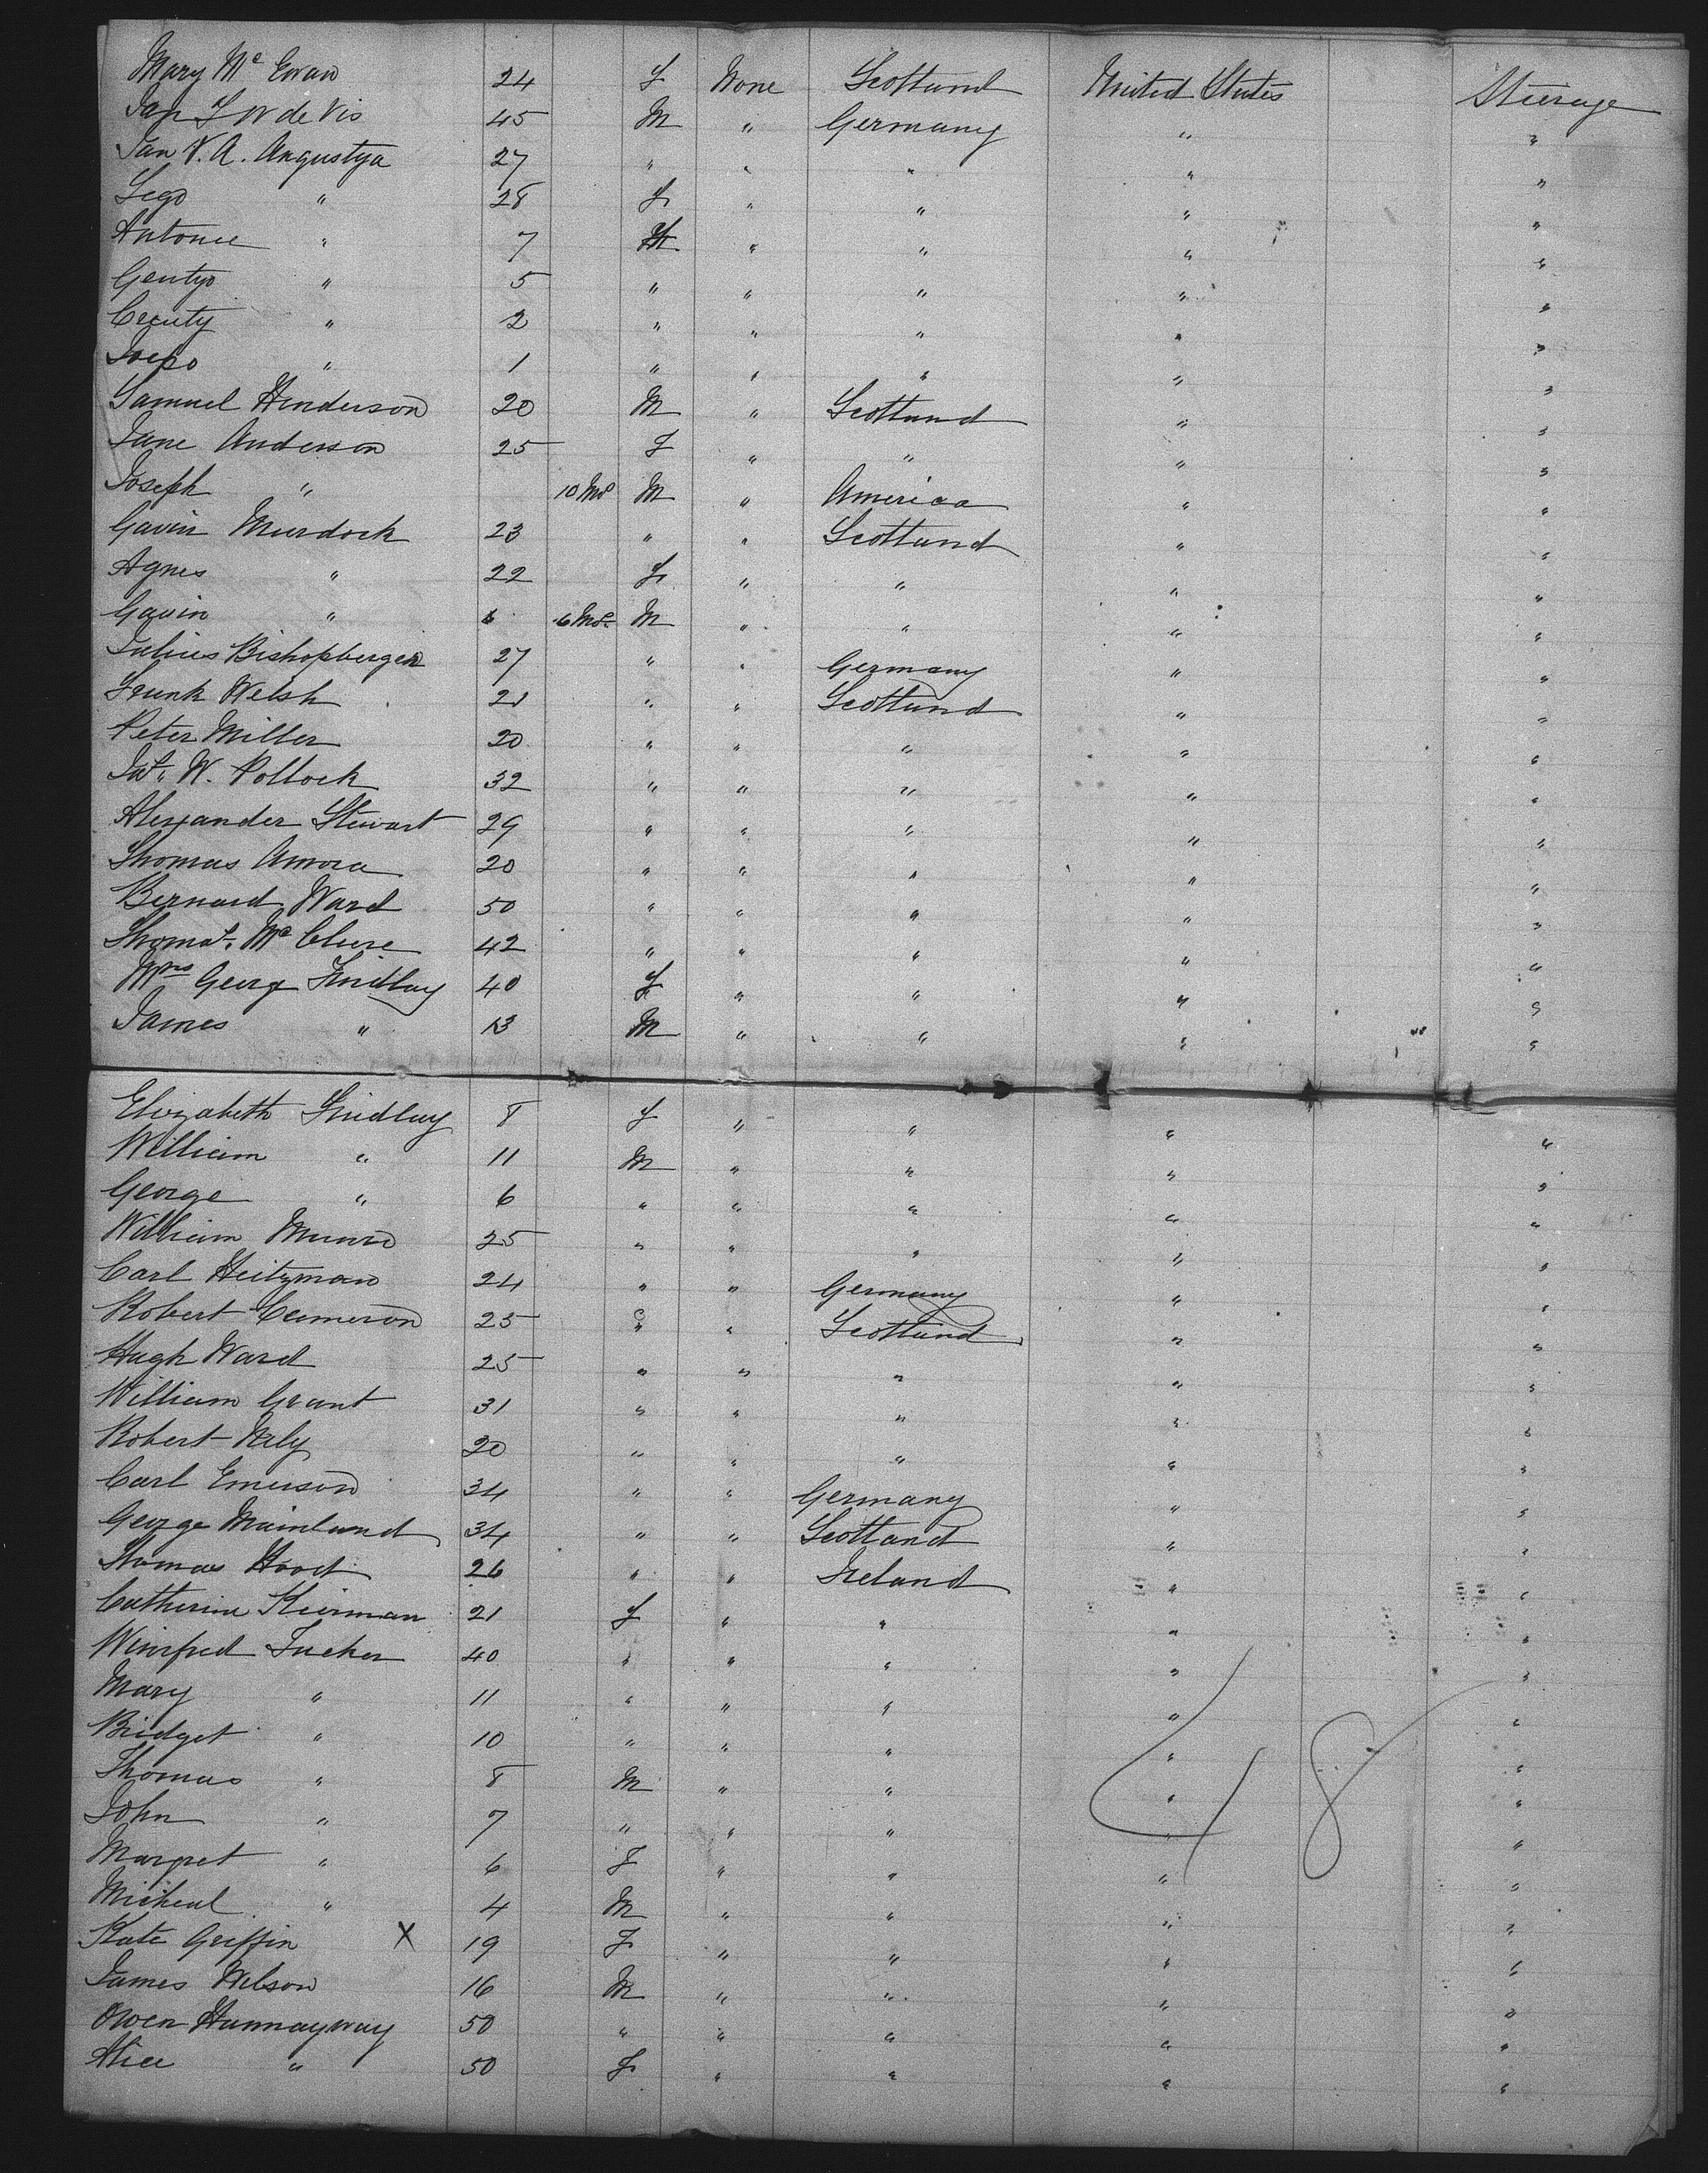 Mary Mc Ewan 24 F None Scotland United States Steerage
Jan F W de Vis 45 M " Germany " "
Jan V. A. Angustya 27 " " " " "
Lego " 28 F " " " "
Antonie " 7 M " " " "
Gentyo " 5 " " " " "
Creuty " 2 " " " " "
Joepo " 1 " " " " "
Samuel Henderson 20 M " Scotland " "
Jane Anderson 25 F " " " "
Joseph " 10 Mos M " America " "
Gavin Murdock 23 " " Scotland " "
Agnes " 22 F " " " "
Gavin " 6 6 Mos M " " " "
Julius Bishopbergen 27 " " Germany " "
Frank Welsh 21 " " Scotland " "
Peter Miller 20 " " " " "
Jas. W. Pollock 32 " " " " "
Alexander Stewart 29 " " " " "
Thomas Amora 20 " " " " "
Bernard Ward 50 " " " " "
Thomas Mc Clure 42 " " " " "
Mrs George Findlay 40 F " " " "
James " 13 M " " " "
Elizabeth Findlay 8 F " " " "
William " 11 M " " " "
George " 6 " " " " "
William Munro 25 " " " " "
Carl Heitzman 24 " " Germany " "
Robert Cameron 25 " " Scotland " "
Hugh Ward 25 " " " " "
William Grant 31 " " " " "
Robert Nely 20 " " " " "
Carl Emerson 34 " " Germany " "
George Mainland 34 " " Scotland " "
Thomas Hood 26 " " Ireland " "
Catherine Kiernan 21 F " " " "
Winifred Tucker 40 " " " " "
Mary " 11 " " " " "
Bridget " 10 " " " " "
Thomas " 8 M " " " "
John " 7 " " " " "
Margret " 6 F " " " "
Micheal " 4 M " " " "
Kate Griffin X 19 F " " " "
James Wilson 16 M " " " "
Owen Hannayway 50 " " " " "
Alice " 50 F " " " "
48